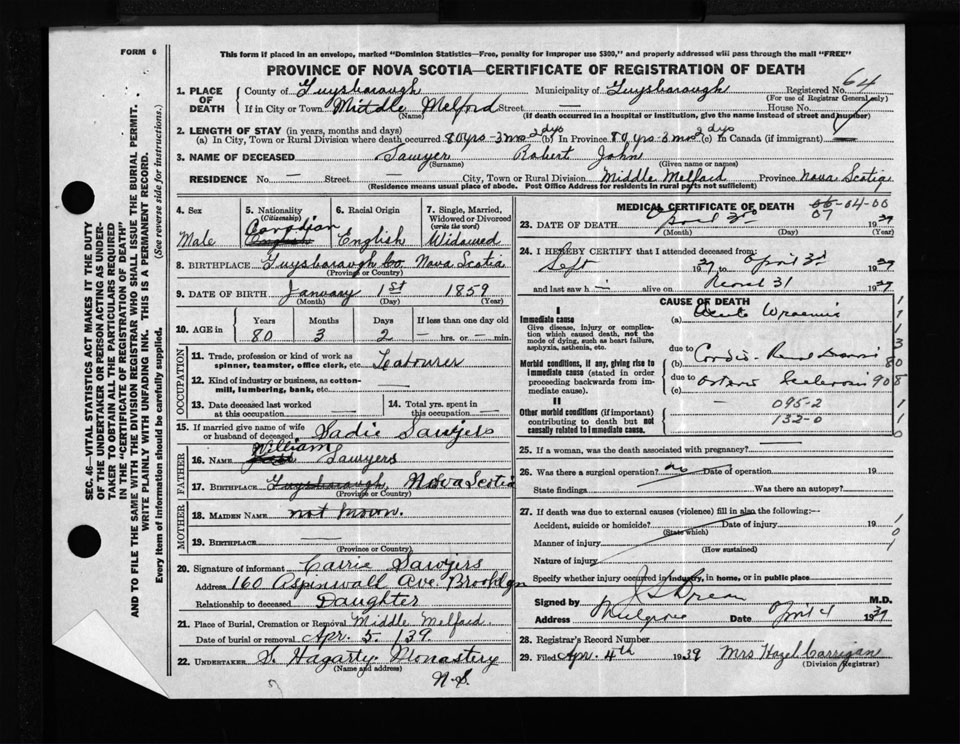 FORM 6
This form if placed in an envelope, marked "Dominion Statistics—Free, penalty for improper use $300," and properly addressed will pass through the mail "FREE"
PROVINCE OF NOVA SCOTIA—CERTIFICATE OF REGISTRATION OF DEATH
SEC. 46—VITAL STATISTICS ACT MAKES IT THE DUTY
OF THE UNDERTAKER OR PERSON ACTING AS UNDER-
TAKER TO OBTAIN ALL THE PARTICULARS REQUIRED
IN THE "CERTIFICATE OF REGISTRATION OF DEATH"
AND TO FILE THE SAME WITH THE DIVISION REGISTRAR WHO SHALL ISSUE THE BURIAL PERMIT.
WRITE PLAINLY WITH UNFADING INK. THIS IS A PERMANENT RECORD.
Every item of information should be carefully supplied. (See reverse side for instructions.)
1. PLACE OF DEATH
County of Guysborough Municipality of Guysborough Registered No. 64
(For use of Registrar General only)
If in City or Town Middle Melford Street — House No.
(Name) (If death occurred in a hospital or institution, give the name instead of street and number)
2. LENGTH OF STAY (in years, months and days)
(a) In City, Town or Rural Division where death occurred 80 yrs-3 mos 2 dys (b) In Province 80 yrs-3 mos 2 dys (c) In Canada (if immigrant) —
3. NAME OF DECEASED Sawyer Robert John
(Surname) (Given name or names)
RESIDENCE No. — Street — City, Town or Rural Division Middle Melford Province Nova Scotia
(Residence means usual place of abode. Post Office Address for residents in rural parts not sufficient)
4. Sex
Male
5. Nationality
(Citizenship)
Canadian
English
6. Racial Origin
English
7. Single, Married,
Widowed or Divorced
(write the word)
Widowed
8. BIRTHPLACE Guysborough Co. Nova Scotia
(Province or Country)
9. DATE OF BIRTH January 1st 1859
(Month) (Day) (Year)
10. AGE in
Years Months Days If less than one day old
80 3 2 — hrs. or — min.
OCCUPATION
11. Trade, profession or kind of work as
spinner, teamster, office clerk, etc. Labourer
12. Kind of industry or business, as cotton-
mill, lumbering, bank, etc. —
13. Date deceased last worked
at this occupation —
14. Total yrs. spent in
this occupation —
15. If married give name of wife
or husband of deceased Sadie Sawyers
FATHER
16. Name William Sawyers
17. Birthplace Guysborough, Nova Scotia
(Province or Country)
MOTHER
18. Maiden Name not known.
19. Birthplace —
(Province or Country)
20. Signature of informant Carrie Sawyers
Address 160 Aspinwall Ave. Brooklyn
Relationship to deceased Daughter
21. Place of Burial, Cremation or Removal Middle Melford.
Date of burial or removal Apr. 5. 139
22. UNDERTAKER S. Hagarty Monastery
(Name and address)
N.S.
MEDICAL CERTIFICATE OF DEATH
04-00
07
23. DATE OF DEATH April 3rd 1939
(Month) (Day) (Year)
24. I HEREBY CERTIFY that I attended deceased from:
Sept 1937 to April 3d 1939
and last saw h i alive on March 31 1939
CAUSE OF DEATH
I
Immediate cause
Give disease, injury or complica-
tion which caused death, not the
mode of dying, such as heart failure,
asphyxia, asthenia, etc.
(a) Acute Uraemia
Morbid conditions, if any, giving rise to
immediate cause (stated in order
proceeding backwards from im-
mediate cause).
due to Cardio-Renal
(b)
due to
(c)
908
095-2
132-0
II
Other morbid conditions (if important)
contributing to death but not
causally related to immediate cause.
25. If a woman, was the death associated with pregnancy? —
26. Was there a surgical operation? no Date of operation 19
State findings Was there an autopsy?
27. If death was due to external causes (violence) fill in also the following:—
Accident, suicide or homicide? Date of injury 19
(State which)
Manner of injury
(How sustained)
Nature of injury
Specify whether injury occurred in industry, in home, or in public place
Signed by M.D.
Address Mulgrave Date April 4 1939
28. Registrar's Record Number
29. Filed Apr. 4th 1939 Mrs Hazel Carrigan
(Division Registrar)